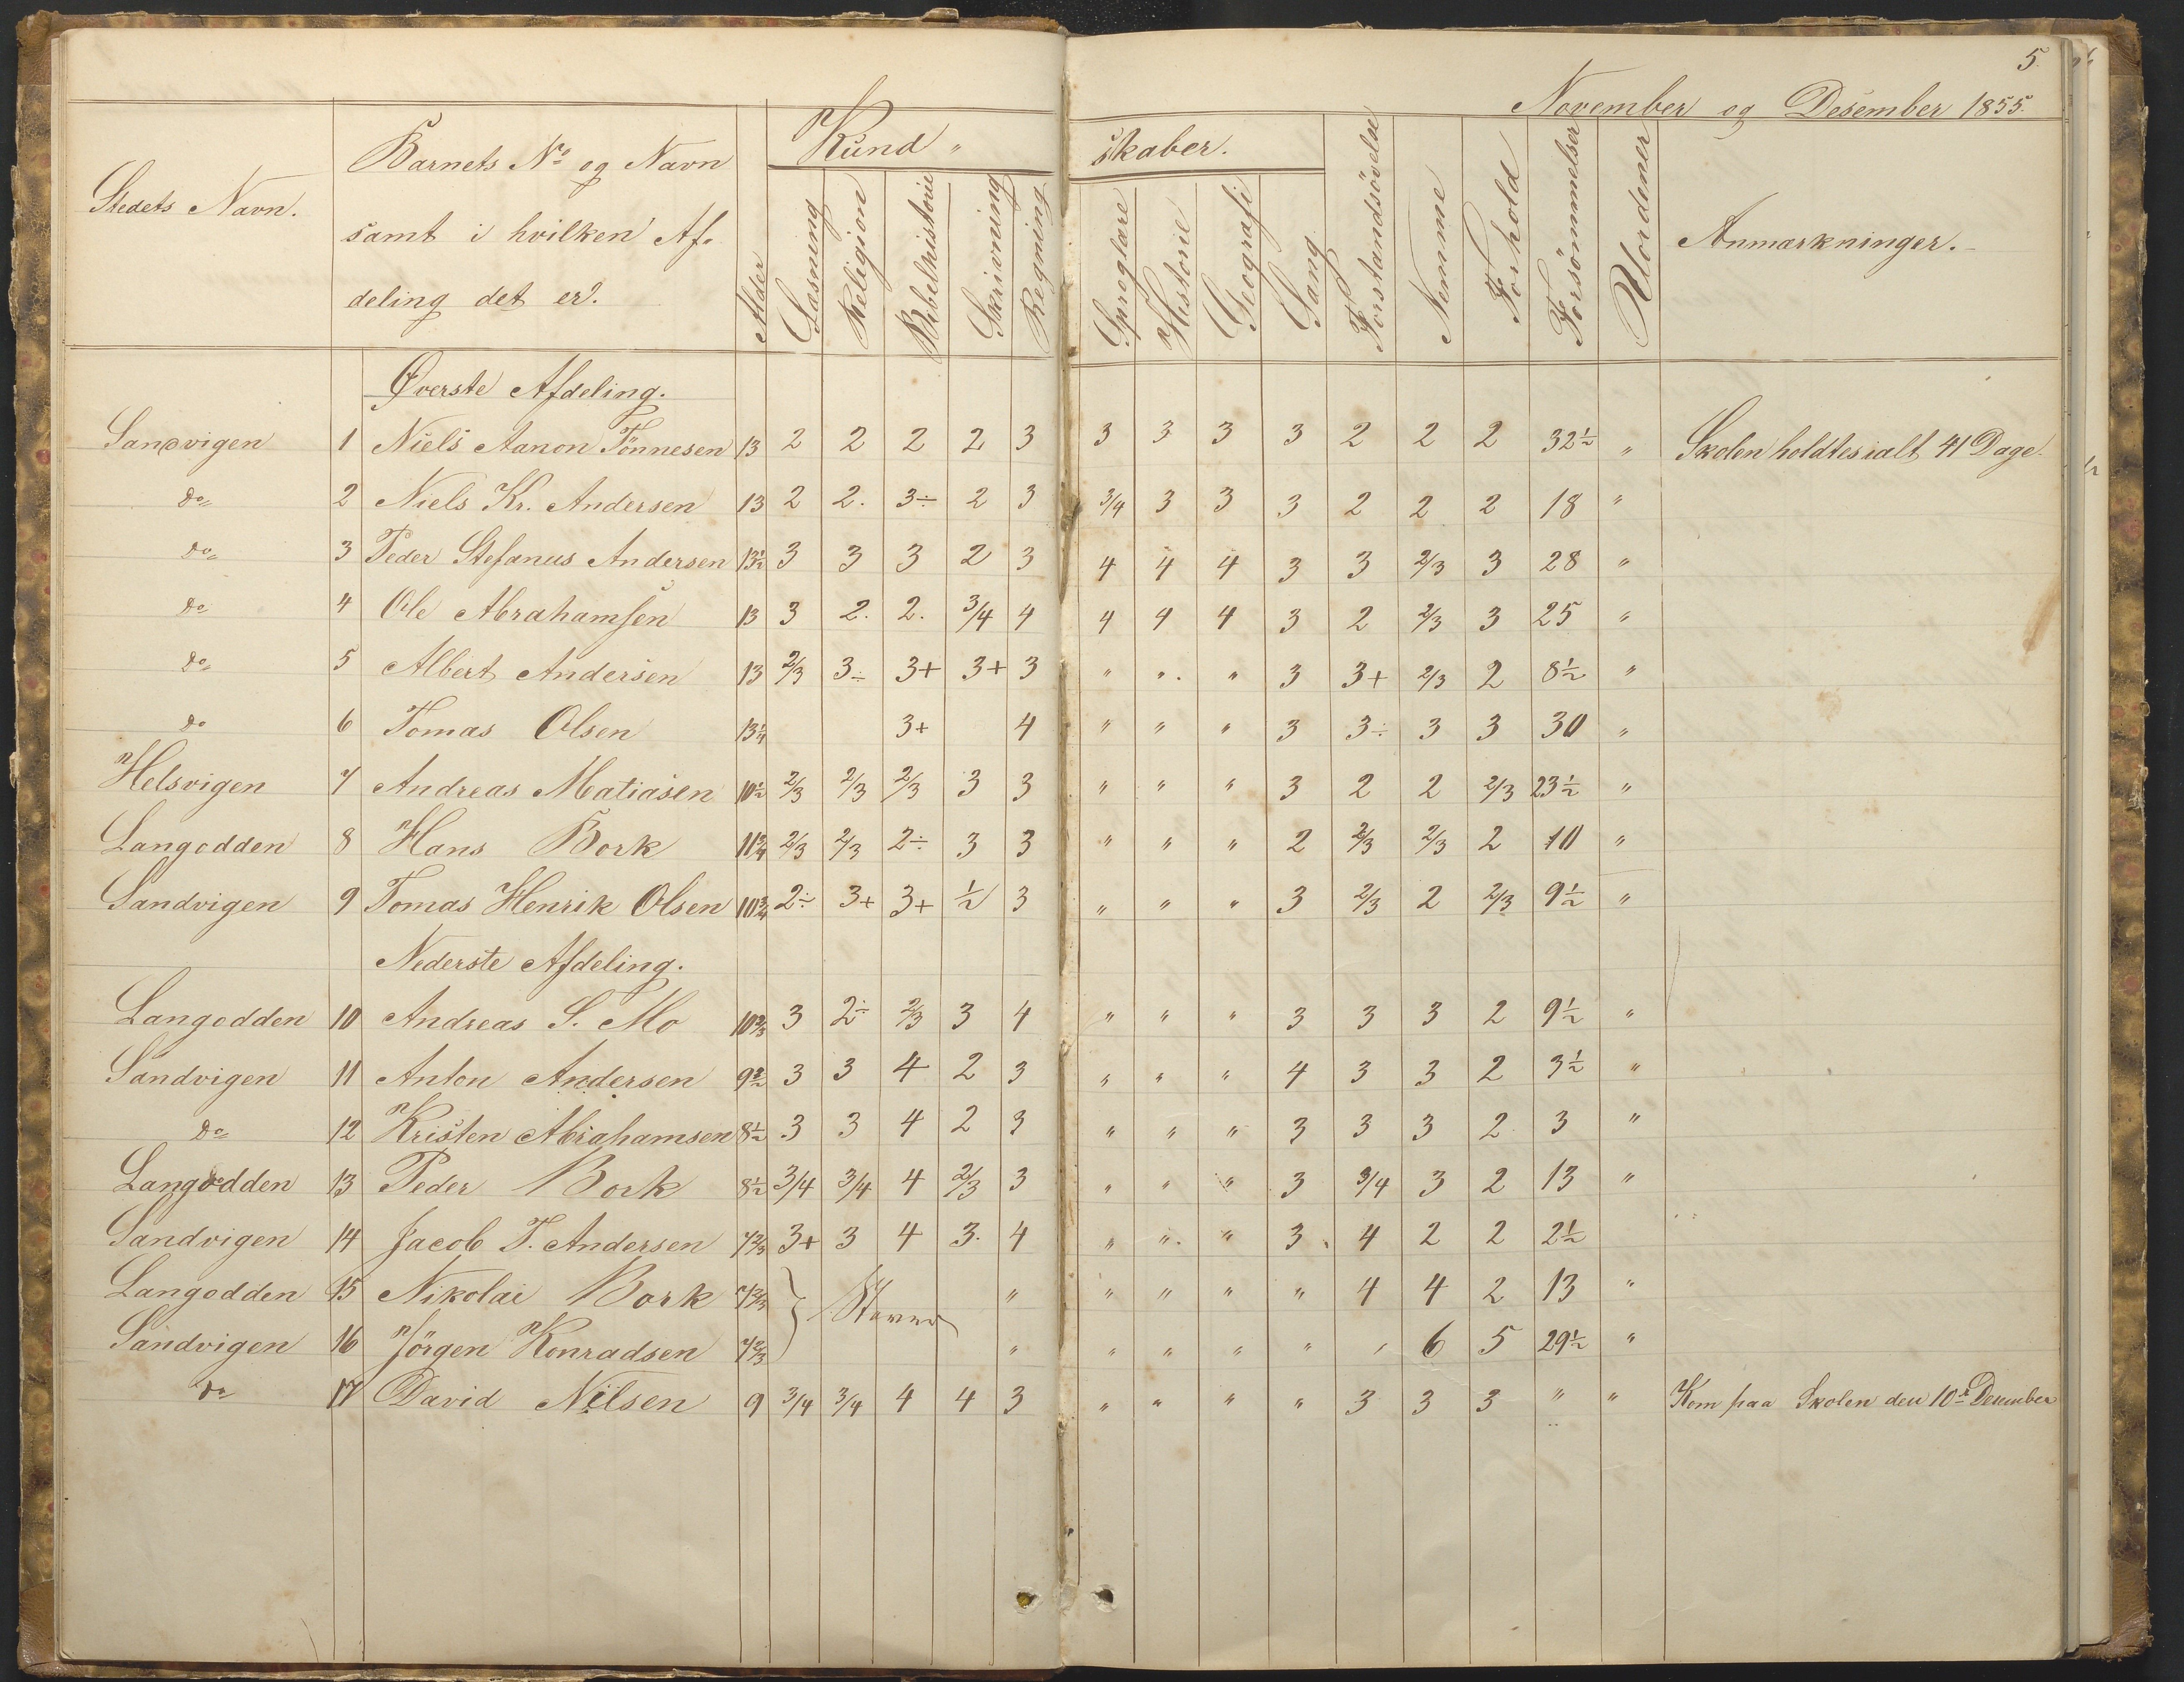 5.
November og Desember 1855.
Stedets Navn. | Barnets No og Navn samt i hvilken Afdeling det er. | Alder | Kundskaber. | Anmærkninger.
Læsning | Religion | Bibelhistorie | Skrivning | Regning | Sproglære | Historie | Geografi | Sang | Forstandsövelse | Nemme | Forhold | Forsömmelser | Uordener
Øverste Afdeling.
Sandvigen 1 Niels Aanon Tönnesen 13 2 2 2 2 3 3 3 3 3 2 2 2 32½ " Skolen holdtes ialt 41 Dage.
do 2 Niels Kr. Andersen 13 2 2. 3÷ 2 3 3/4 3 3 3 2 2 2 18 "
do 3 Peder Stefanus Andersen 13½ 3 3 3 2 3 4 4 4 3 3 2/3 3 28 "
do 4 Ole Abrahamsen 13 3 2. 2. 3/4 4 4 4 4 3 2 2/3 3 25 "
do 5 Albert Andersen 13 2/3 3÷ 3+ 3+ 3 " " " 3 3+ 2/3 2 8½ "
do 6 Tomas Olsen 13¼ 3+ 4 " " " 3 3÷ 3 3 30 "
Helsvigen 7 Andreas Matiasen 10½ 2/3 2/3 2/3 3 3 " " " 3 2 2 2/3 23½ "
Langodden 8 Hans Bork 11¾ 2/3 2/3 2÷ 3 3 " " " 2 2/3 2/3 2 10 "
Sandvigen 9 Tomas Henrik Olsen 10¾ 2÷ 3+ 3+ ½ 3 " " " 3 2/3 2 2/3 9½ "
Nederste Afdeling.
Langodden 10 Andreas S. Mo 10 2/3 3 2÷ 2/3 3 4 " " " 3 3 3 2 9½ "
Sandvigen 11 Anton Andersen 9½ 3 3 4 2 3 " " " 4 3 3 2 3½ "
do 12 Kristen Abrahamsen 8½ 3 3 4 2 3 " " " 3 3 3 2 3 "
Langodden 13 Peder Bork 8½ 3/4 3/4 4 2/3 3 " " " 3 3/4 3 2 13 "
Sandvigen 14 Jacob T. Andersen 7 2/3 3+ 3 4 3. 4 " " " 3 4 2 2 2½
Langodden 15 Nikolai Bork 7 2/3 } Staver " " " " " 4 4 2 13 "
Sandvigen 16 Jörgen Konradsen 7 2/3 " " " " " " 6 5 29½ "
do 17 David Nilsen 9 3/4 3/4 4 4 3 " " " " 3 3 3 " " Kom paa Skolen den 10de December